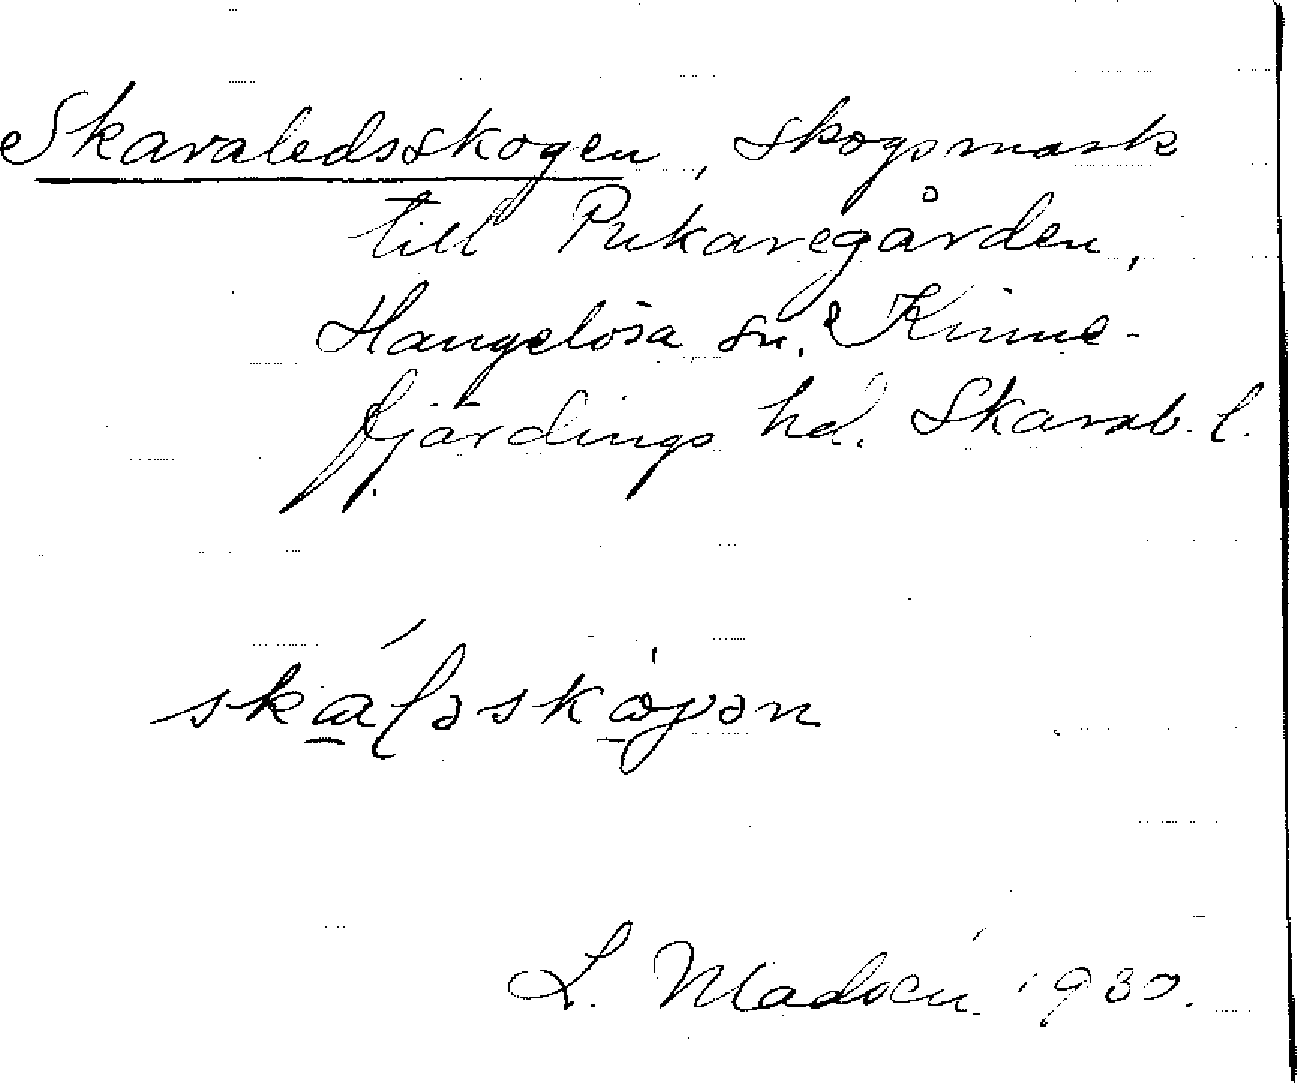 Skaraledsskogen, skogsmark
till Pukaregården,
Hangelösa sn. Kinne-
fjärdings hd. Skarab. l.
skálaskòγən
L. Madsén 1930.